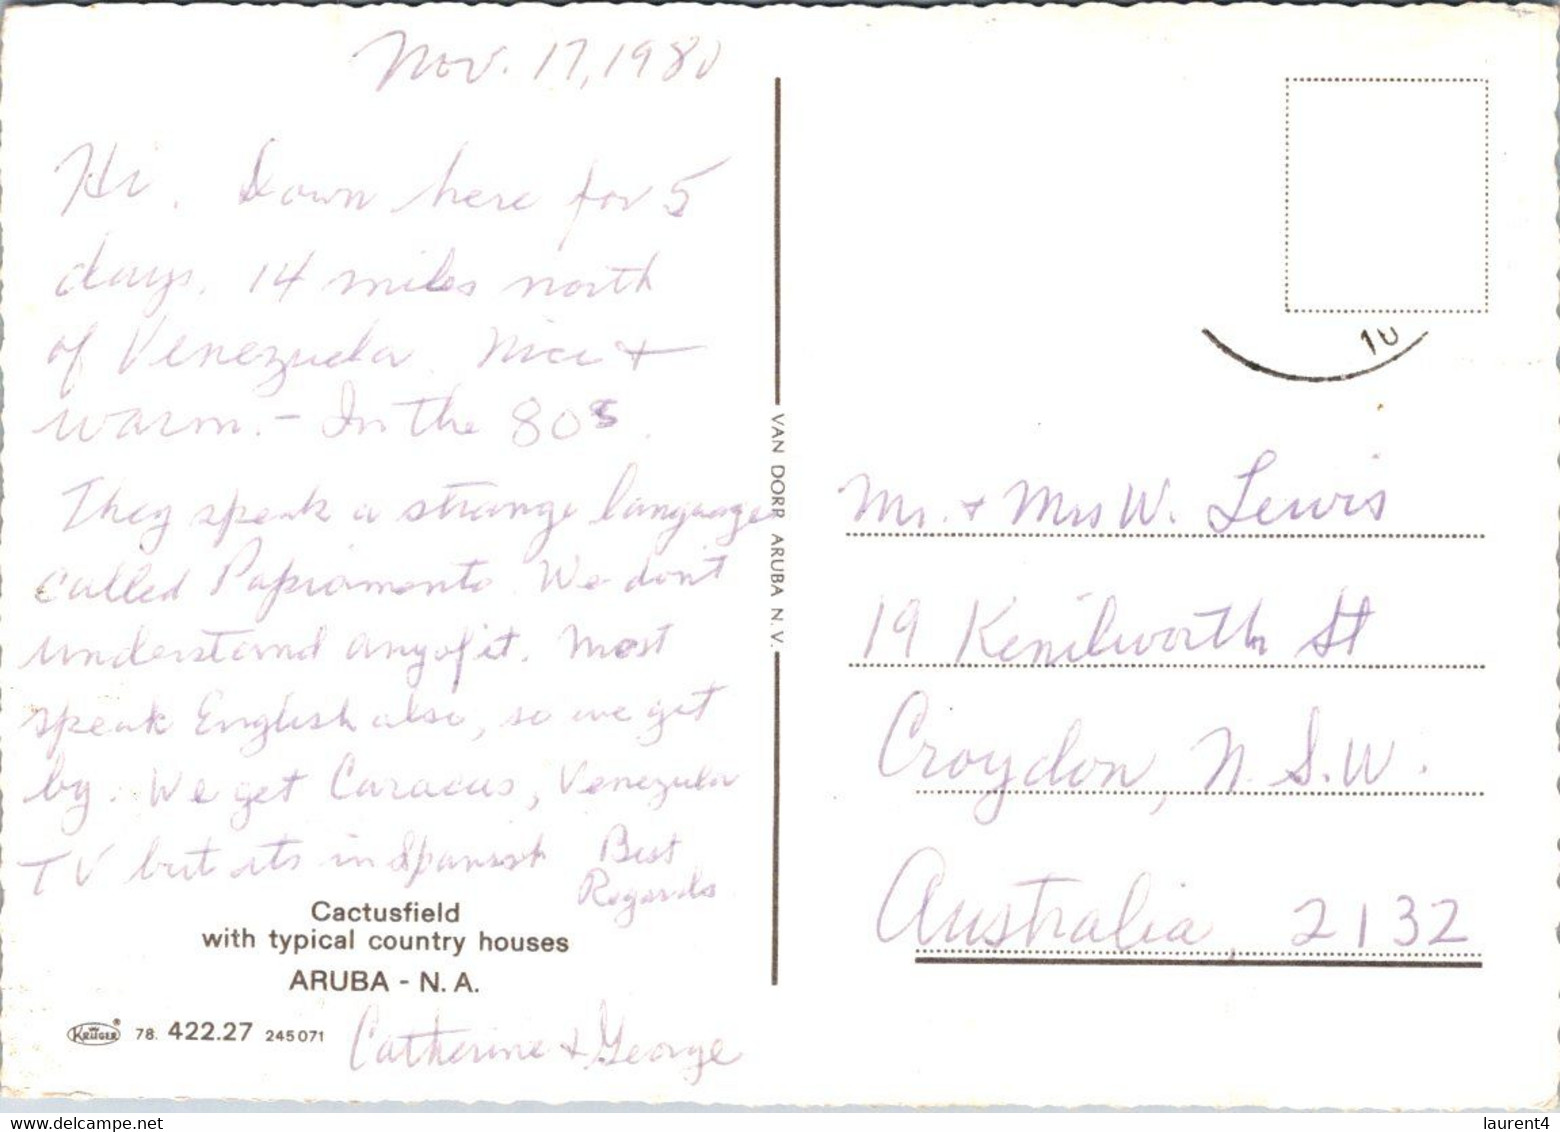 Nov. 17, 1980
Hi. Down here for 5
days. 14 miles north
of Venezuela. Nice +
warm. - In the 80s.
They speak a strange language
called Papiamento. We don't
understand any of it. Most
speak English also, so we get
by. We get Caracus, Venezula
TV but its in Spanish
Best
Regards
Cactusfield
with typical country houses
ARUBA - N. A.
KRÜGER ® 78. 422.27 245071
Catherine & George
VAN DORP ARUBA N.V.
10
Mr. + Mrs W. Lewis
19 Kenilworth St
Croydon, N.S.W.
Australia, 2132
www.delcampe.net
laurent4